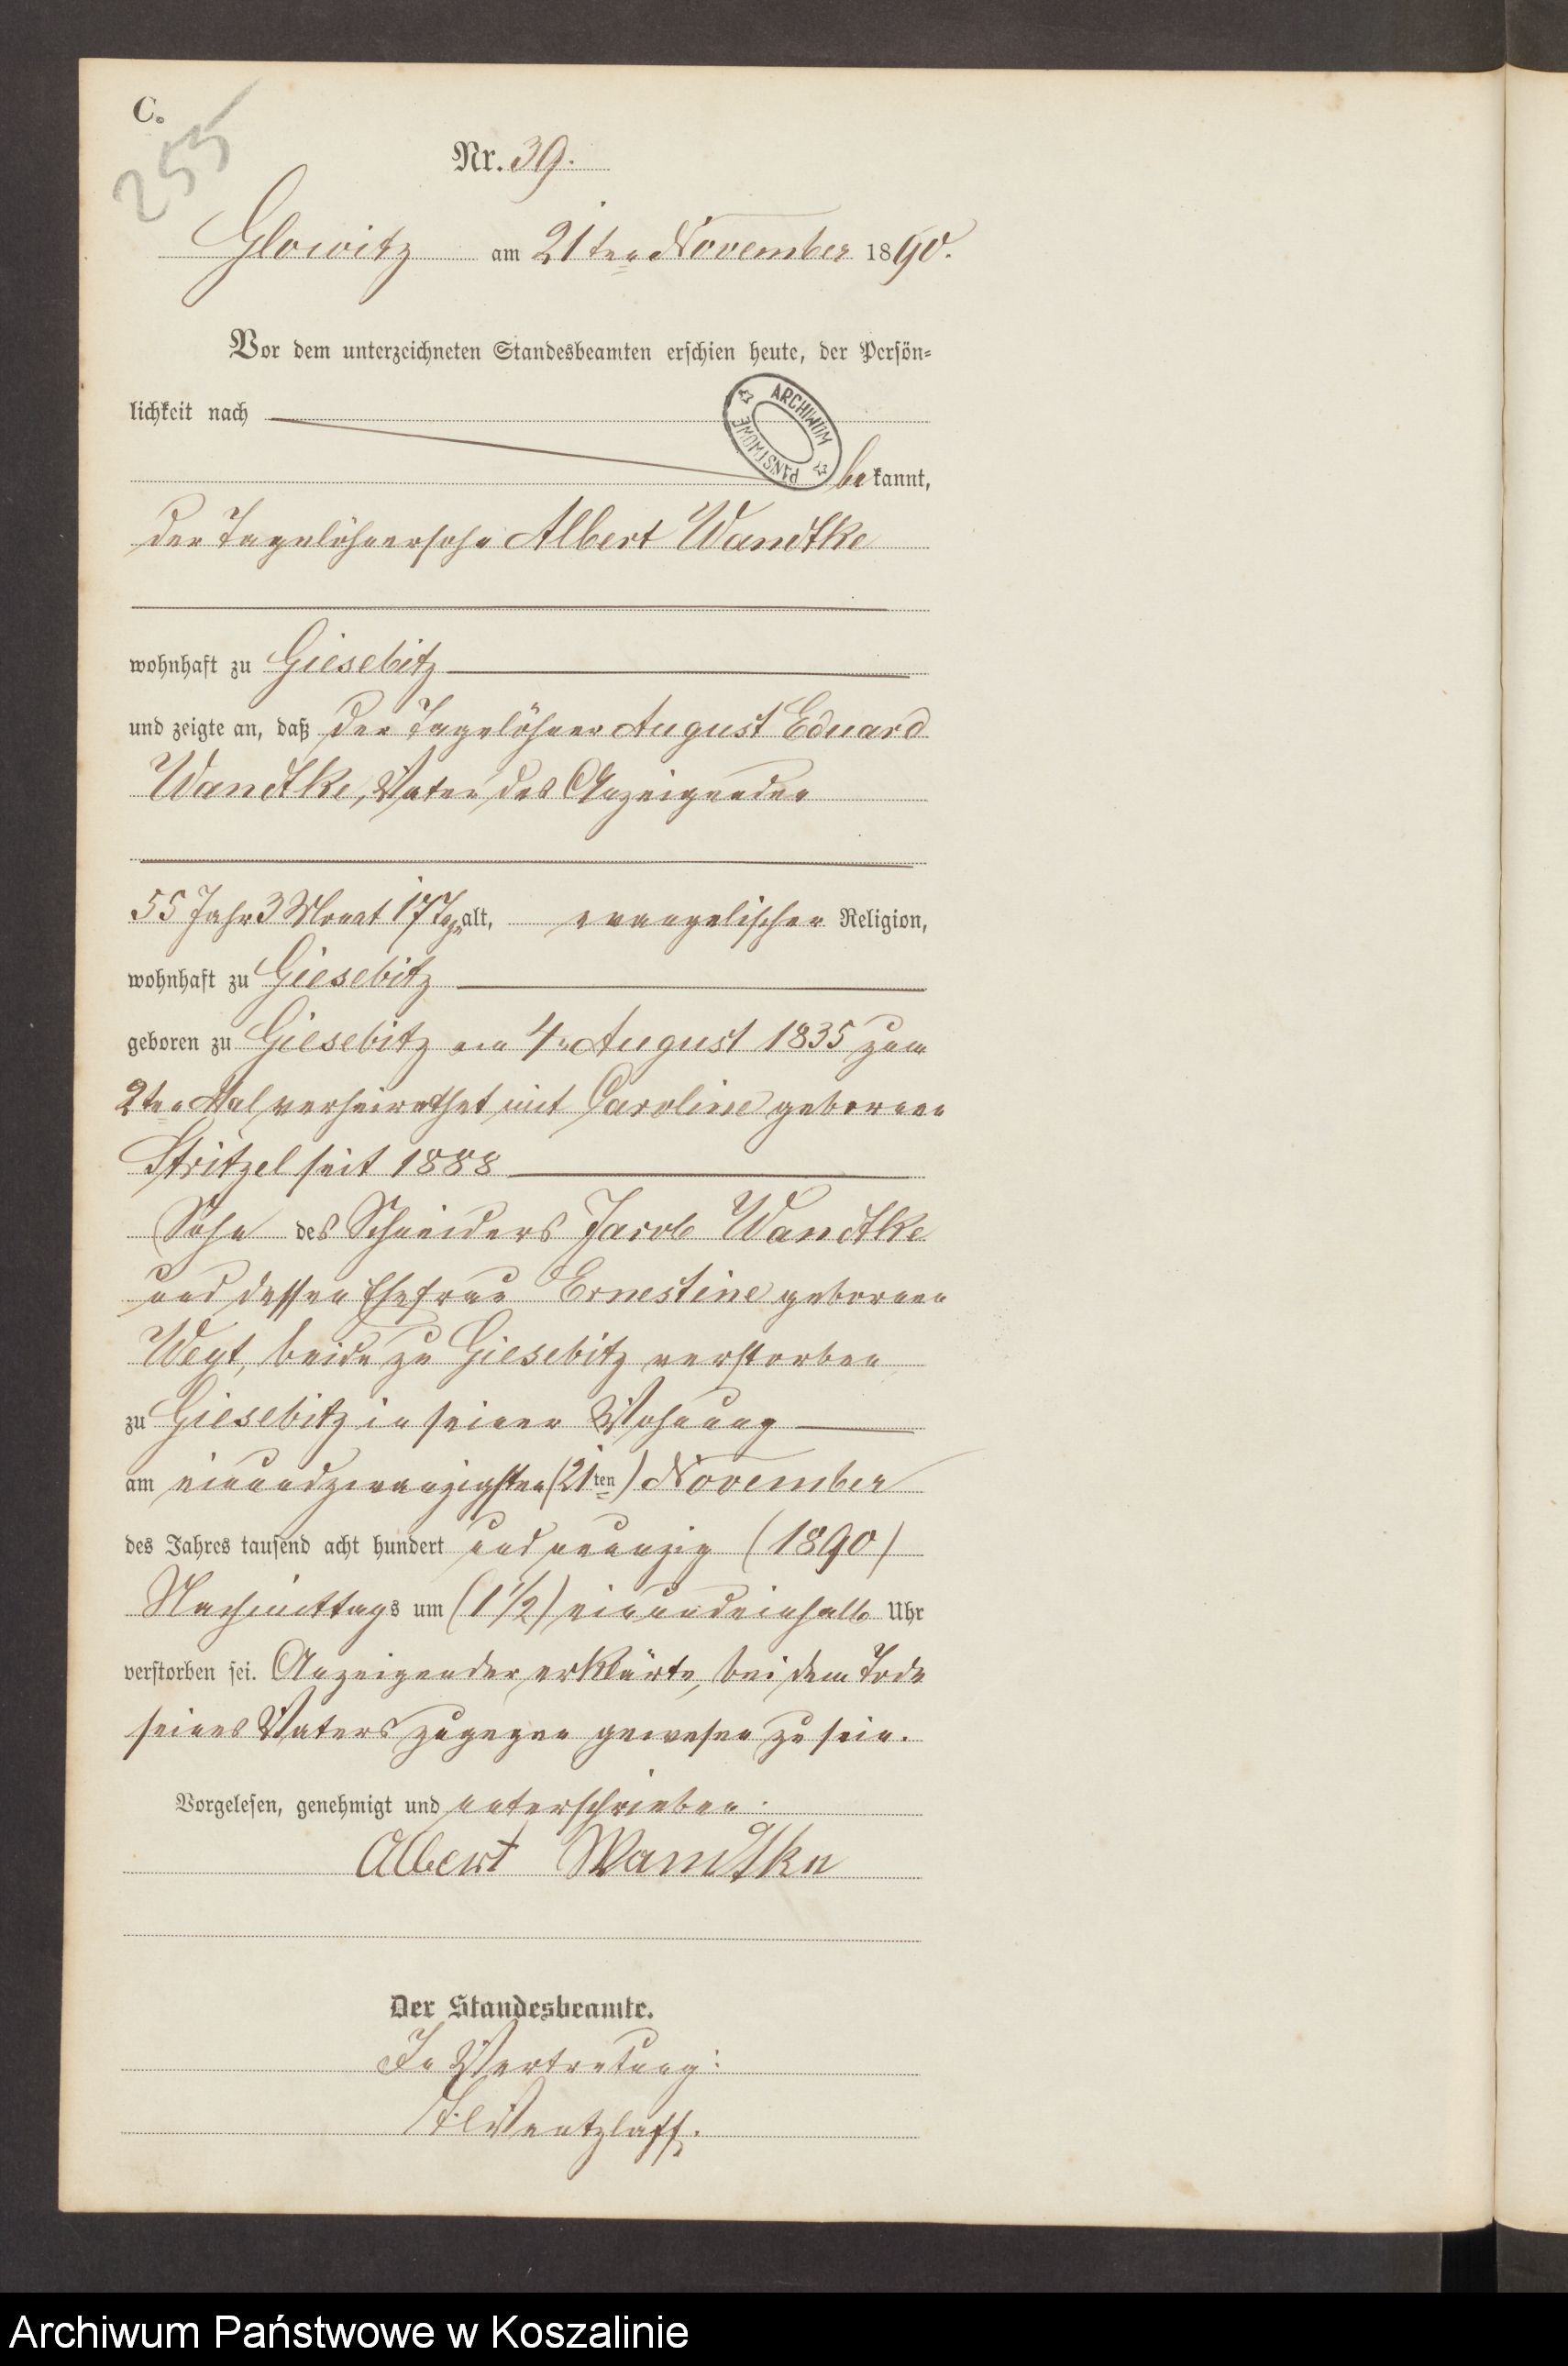 C.
255
Nr. 39.
Glowitz am 21ten November 1890.
Vor dem unterzeichneten Standesbeamten erschien heute, der Persön-
lichkeit nach
ARCHIWUM PAŃSTWOWE
bekannt,
der Tagelöhnersohn Albert Wandtke
wohnhaft zu Giesebitz
und zeigte an, daß der Tagelöhner August Eduard
Wandtke, Vater des Anzeigenden
55 Jahr 3 Monat 17 Tage alt, evangelischer Religion,
wohnhaft zu Giesebitz
geboren zu Giesebitz am 4. August 1835 zum
2ten Mal verheirathet mit Caroline geborenen
Stritzel seit 1888
Sohn des Schneiders Jacob Wandtke
und dessen Ehefrau Ernestine geborenen
Weyt, beide zu Giesebitz verstorben
zu Giesebitz in seiner Wohnung
am einundzwanzigsten (21ten) November
des Jahres tausend acht hundert und neunzig (1890)
Nachmittags um (1 1/2) einundeinhalb Uhr
verstorben sei. Anzeigender erklärte, bei dem Tode
seines Vaters zugegen gewesen zu sein.
Vorgelesen, genehmigt und unterschrieben.
Albert Wandtke
Der Standesbeamte.
In Vertretung:
Wentzlaff.
Archiwum Państwowe w Koszalinie